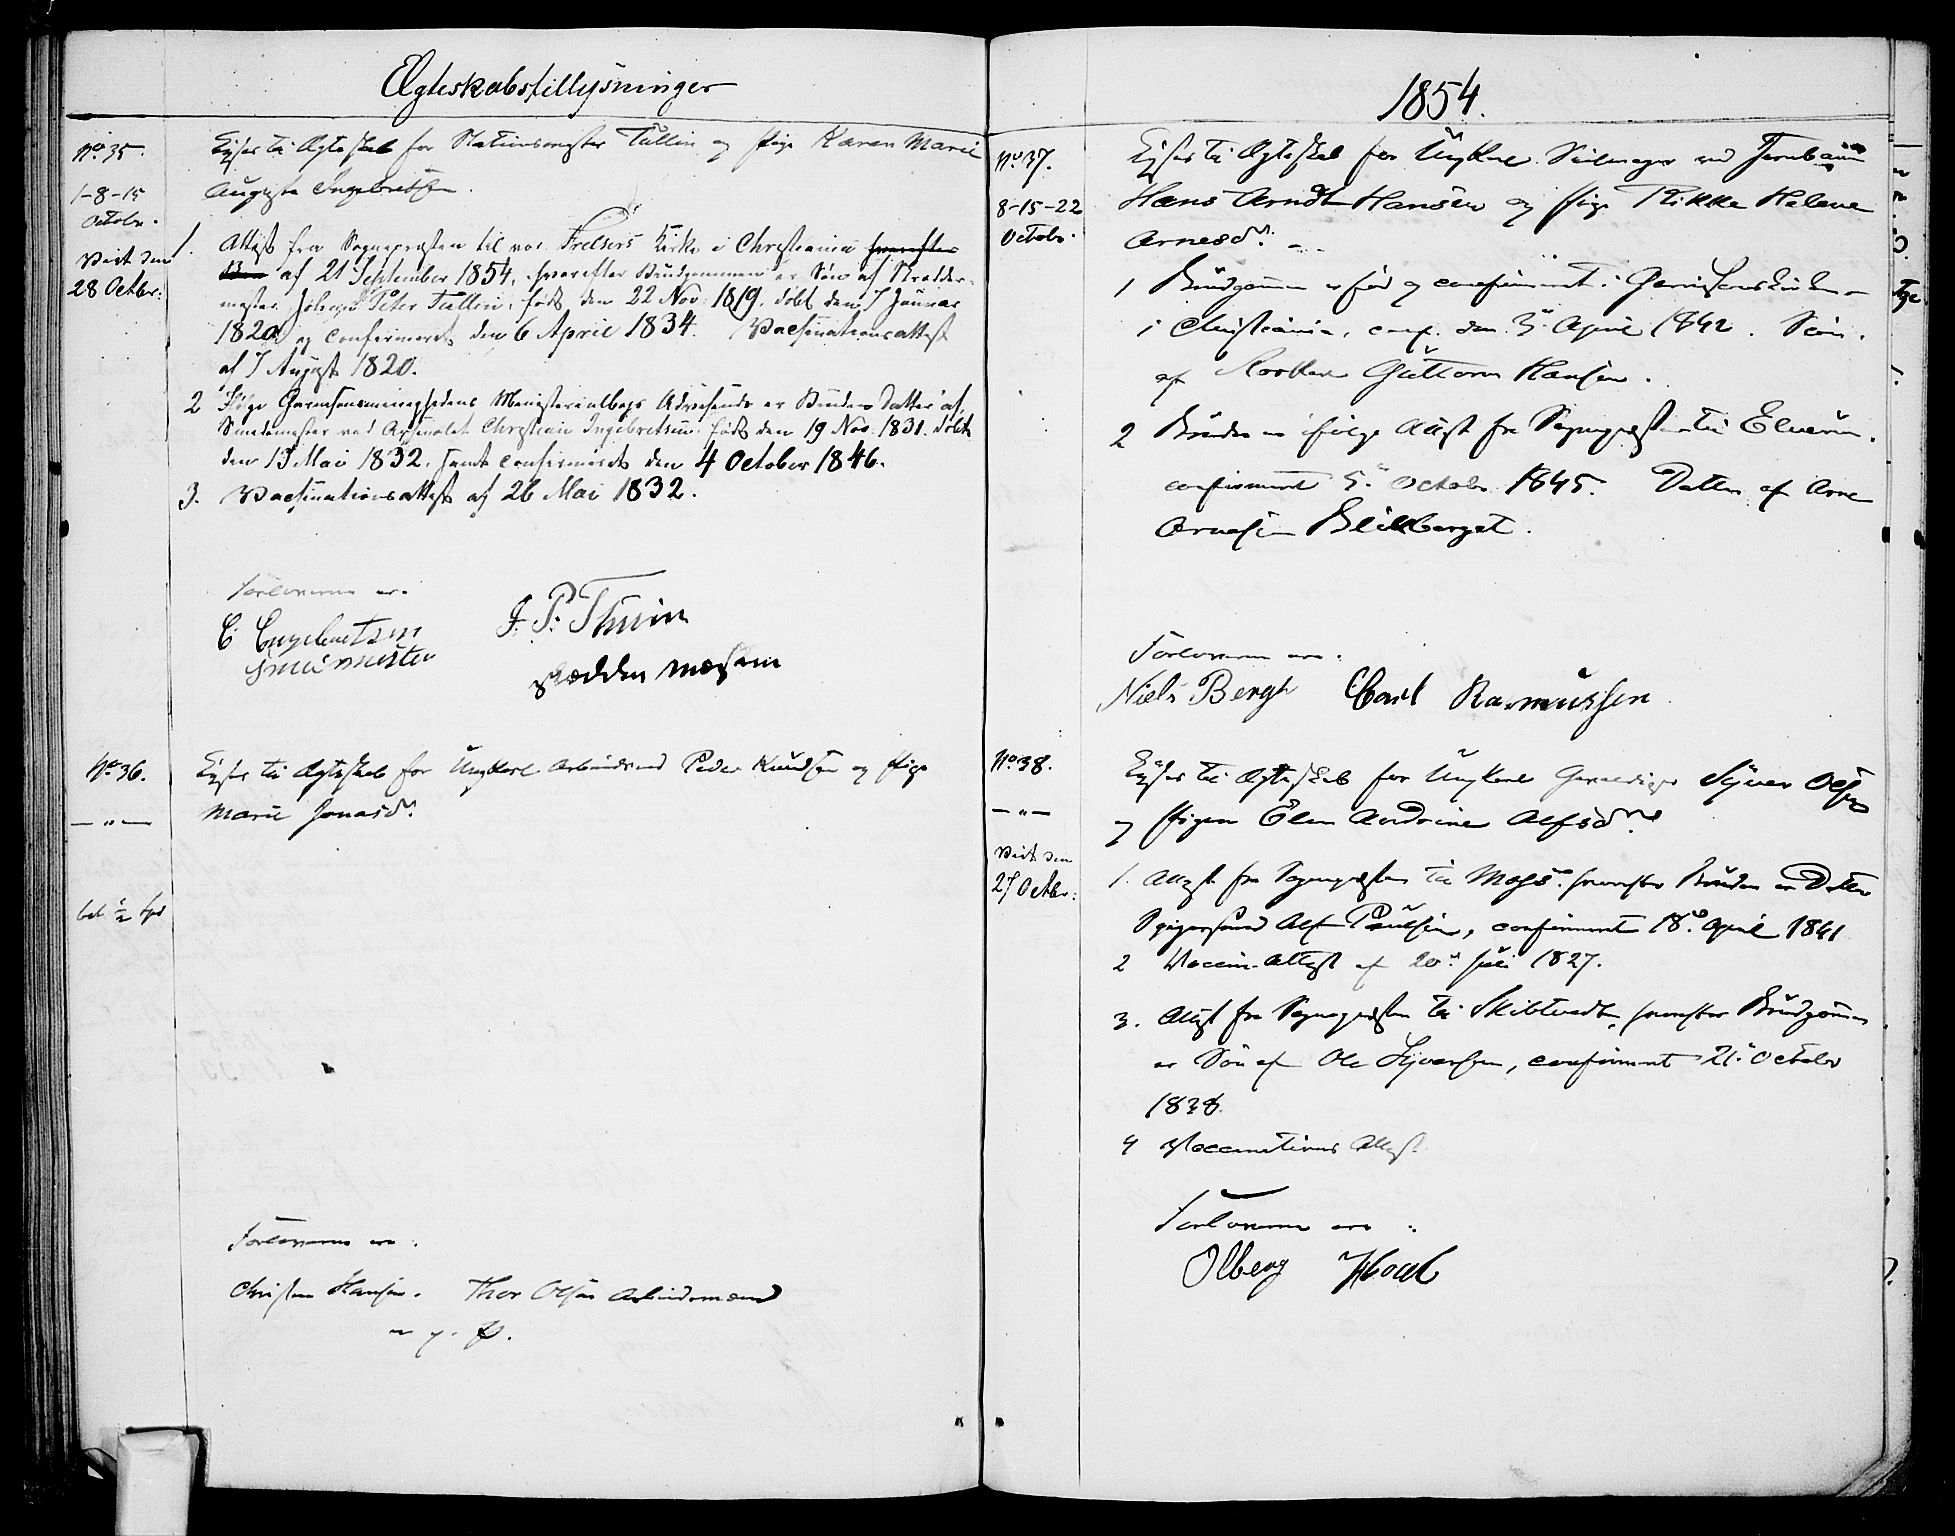 Ægteskabstillysninger
No. 35.
1-8-15
Octobr.
Viet den
28 Octbr:
Lyses til Ægteskab for Stationsmester Tullin og Pige Karen Marie
Augusta Ingebretsen.
1. Attest fra Sognepræsten til vor Frelsers Kirke i Christiania hvorefter
af 21 September 1854, hvorefter Brudgommen er Søn af Skrædder-
mester Johan Peter Tullin, født den 22 Nov: 1819. døbt den 7 Januar
1820 og confirmeret den 6 April 1834. Vaccinationsattest
af 7 August 1820.
2 Ifølge Garnisonsmenighedens Ministerialbogs Udvisende er Bruden Datter af
Smedemester ved Arsenalet Christian Ingebretsen, født den 19 Nov. 1831. døbt
den 13 Mai 1832. samt confirmeret den 4 October 1846.
3. Vaccinationsattest af 26 Mai 1832.
Forloverne ere
C. Engebretsen
Smemester
J. P. Thulin
No. 36.
— " —
bet ½ Spd
Lyses til Ægteskab for Ungkarl Arbeidsmd Peder Knudsen og Pige
Marie Jonasd.
Forloverne ere:
Christen Hansen. Thor Olsen Arbeidsmænd
m. p. P.
1854.
No. 37.
8-15-22
Octobr.
Lyses til Ægteskab for Ungkarl Seilmager ved Jernbanen
Hans Arndt Hansen og Pige Rikke Helene
Arnesd.
1 Brudgommen er fød og confirmeret i Garnisonskirken
i Christiania, conf. den 3 April 1842. Søn
af Guttorm Hansen.
2 Bruden er ifølge Attest fra Sognepræsten til Elverum
confirmeret 5 October 1845. Datter af Arne
Arnesen Blikberget.
Forloverne ere:
Niels Bergh Carl Rasmussen
No. 38.
— " —
Viet den
27 Octbr:
Lyses til Ægteskab for Ungkarl Syver Olsen
og Pigen Elen Andrine Alfsd.
1. Attest fra Sognepræsten til Moss. hvorefter Bruden er Datter
Alf Poulsen, confirmeret 18. April 1841
2 Vaccin-Attest af 20 Juli 1827.
3. Attest fra Sognepræsten til Skibtvedt, hvorefter Brudgommen
er Søn af Ole Syversen, confirmeret 21 October
1838.
4 Vaccinations Attest
Forloverne ere:
Olberg Hoel